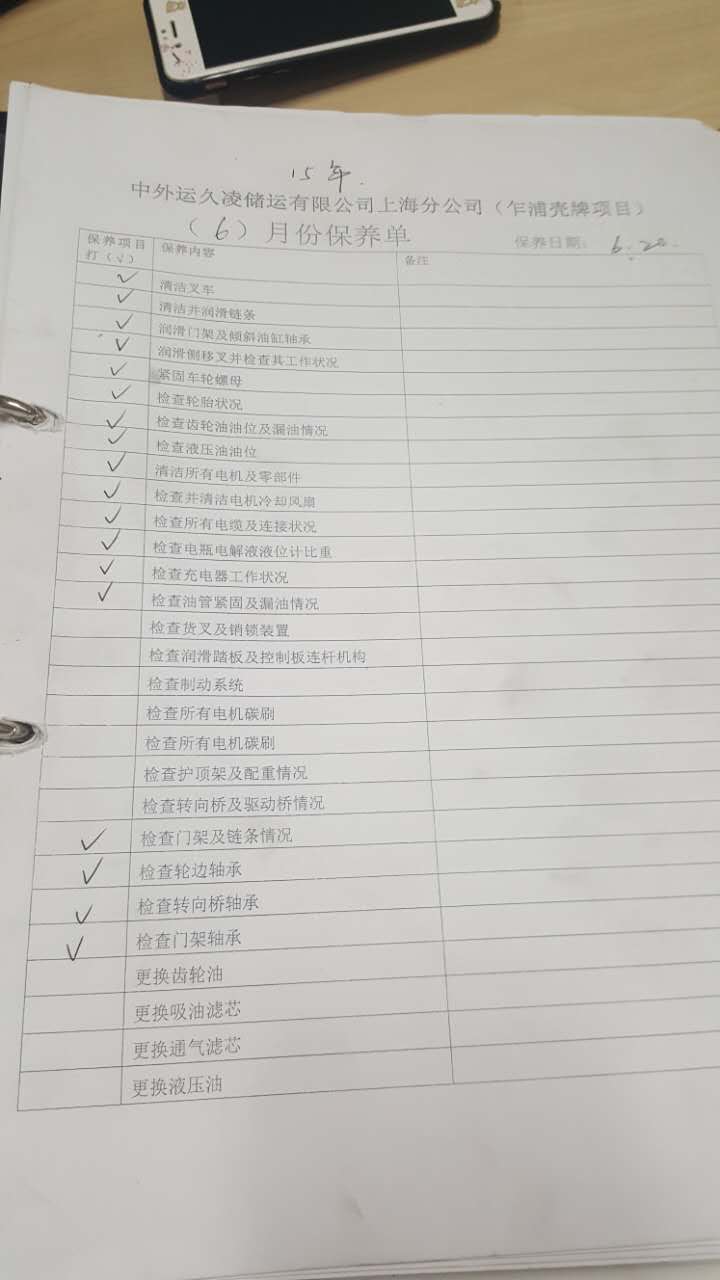 15年.
中外运久凌储运有限公司上海分公司（乍浦壳牌项目）
（6）月份保养单
保养日期： 6.20.
保养项目打（√） 保养内容 备注
✓ 清洁叉车
✓ 清洁并润滑链条
✓ 润滑门架及倾斜油缸轴承
✓ 润滑侧移叉并检查其工作状况
✓ 紧固车轮螺母
✓ 检查轮胎状况
✓ 检查齿轮油油位及漏油情况
✓ 检查液压油油位
✓ 清洁所有电机及零部件
✓ 检查并清洁电机冷却风扇
✓ 检查所有电缆及连接状况
✓ 检查电瓶电解液液位计比重
✓ 检查充电器工作状况
✓ 检查油管紧固及漏油情况
检查货叉及销锁装置
检查润滑踏板及控制板连杆机构
检查制动系统
检查所有电机碳刷
检查所有电机碳刷
检查护顶架及配重情况
检查转向桥及驱动桥情况
✓ 检查门架及链条情况
✓ 检查轮边轴承
✓ 检查转向桥轴承
✓ 检查门架轴承
更换齿轮油
更换吸油滤芯
更换通气滤芯
更换液压油